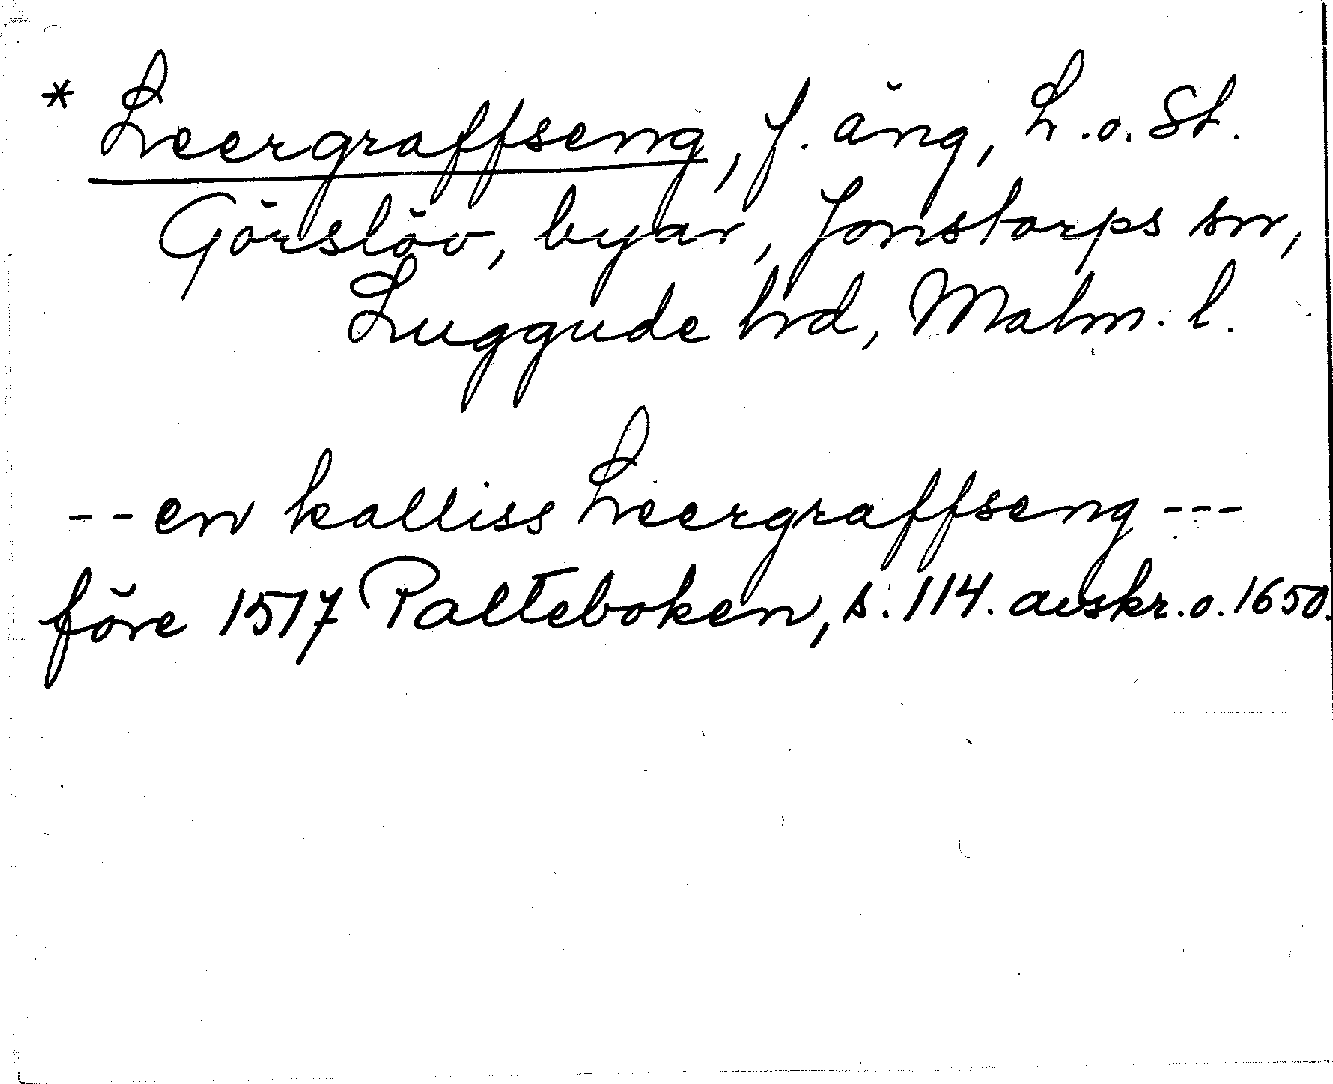 * Leergraffseng, f. äng, L. o. St.
Görslöv, byar, Jonstorps sn,
Luggude hd, Malm. l.
-- en kalliss Leergraffseng ---
före 1517 Palteboken, s. 114. avskr. o. 1650.